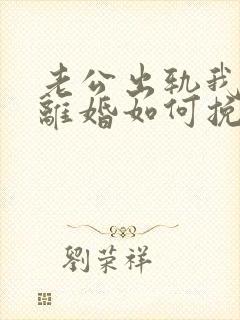 老公出轨我
離婚如何挽
劉荣祥